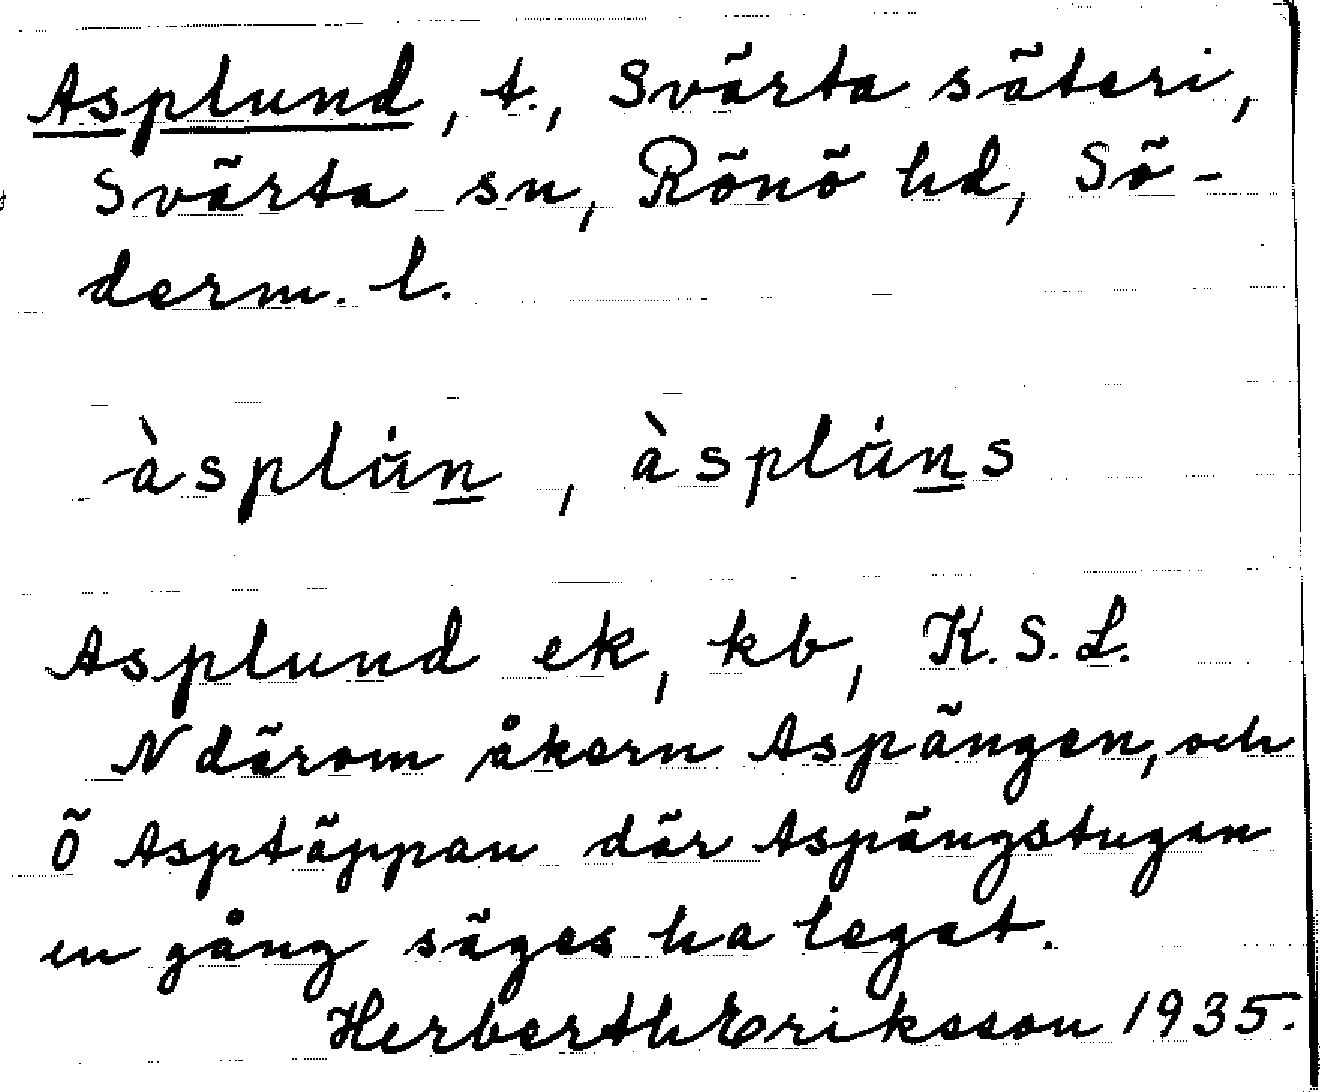 Asplund, t., Svärta säteri,
Svärta sn, Rönö hd, Sö-
derm. l.
àsplu̇n̲, àsplu̇n̲s
Asplund ek, kb, K.S.L.
N därom åkern Aspängen, och
Ö Asptäppan där Aspängstugan
en gång säges ha legat.
Herberth Eriksson 1935.